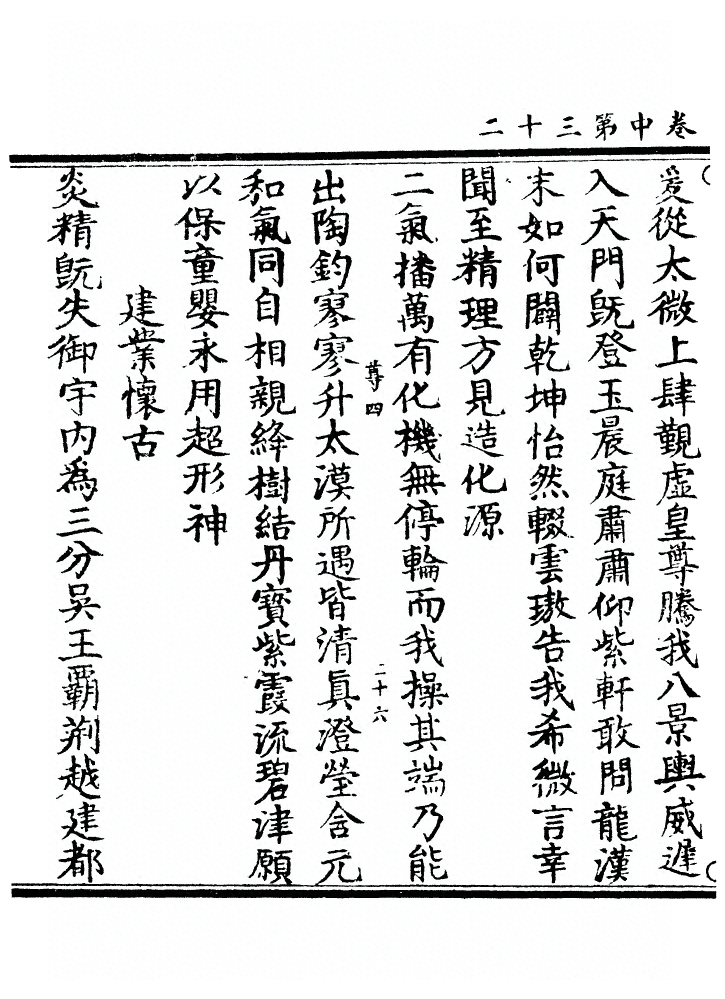 卷中第三十二
爰從太微上肆覲虛皇尊騰我八景輿威遲
入天門既登玉晨庭肅肅仰紫軒敢問龍漢
末如何闢乾坤怡然輟雲璈告我希微言幸
聞至精理方見造化源
二氣播萬有化機無停輪而我操其端乃能
尊四
二十六
出陶鈞寥寥升太漠所遇皆清真澄瑩含元
和氣同自相親絳樹結丹寶紫霞流碧津願
以保童嬰永用超形神
建業懷古
炎精既失御宇內為三分吳王霸荊越建都